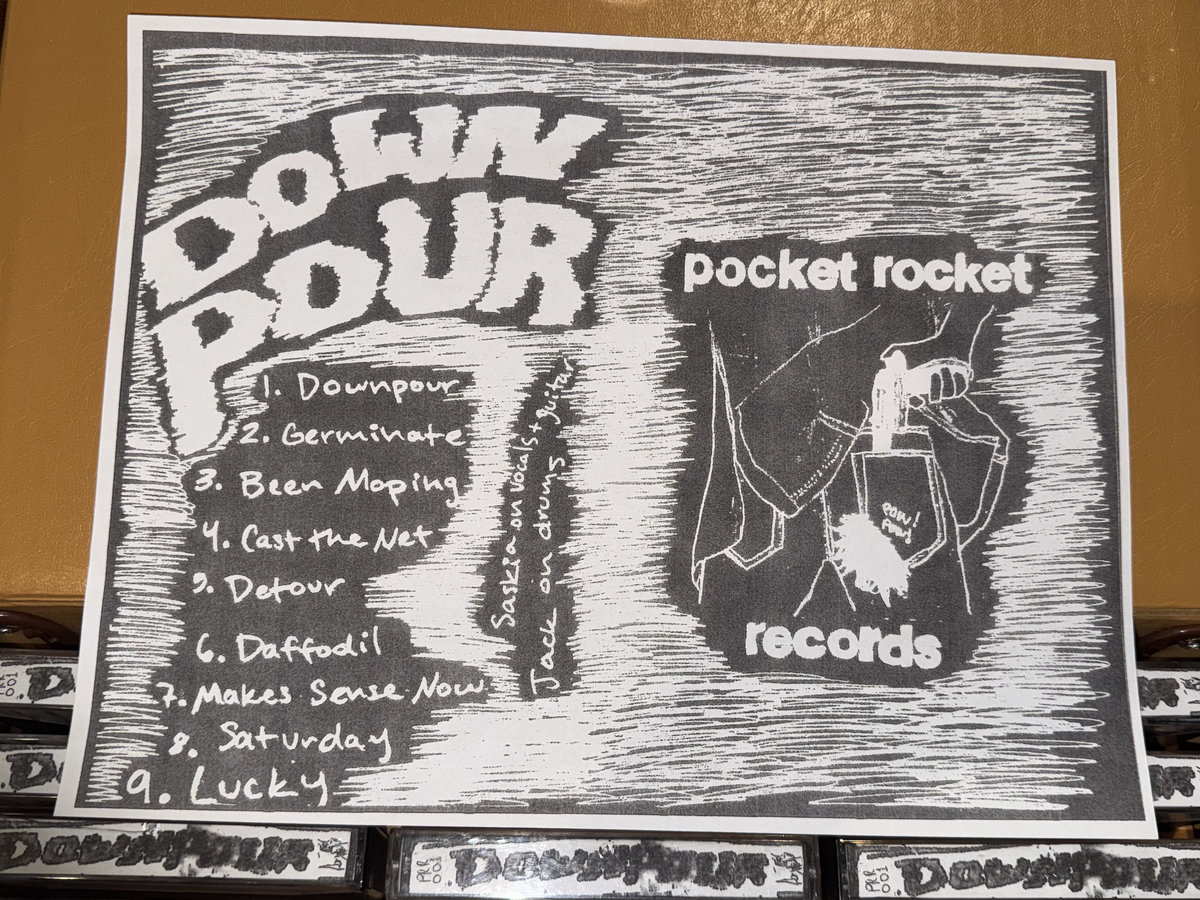 DOWN
POUR
1. Downpour
2. Germinate
3. Been Moping
4. Cast the Net
5. Detour
6. Daffodil
7. Makes Sense Now
8. Saturday
9. Lucky
Saskia on vocals + guitar
Jack on drums
pocket rocket
pow!
records
PRR
001
D
PRR
001
DOWNPOUR
PRR
001
DOWNPOUR
DOWNPOUR